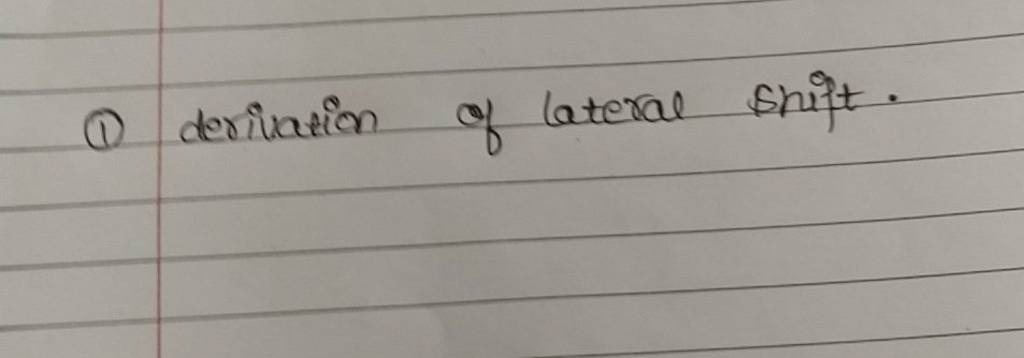 ① derivation of lateral shift.